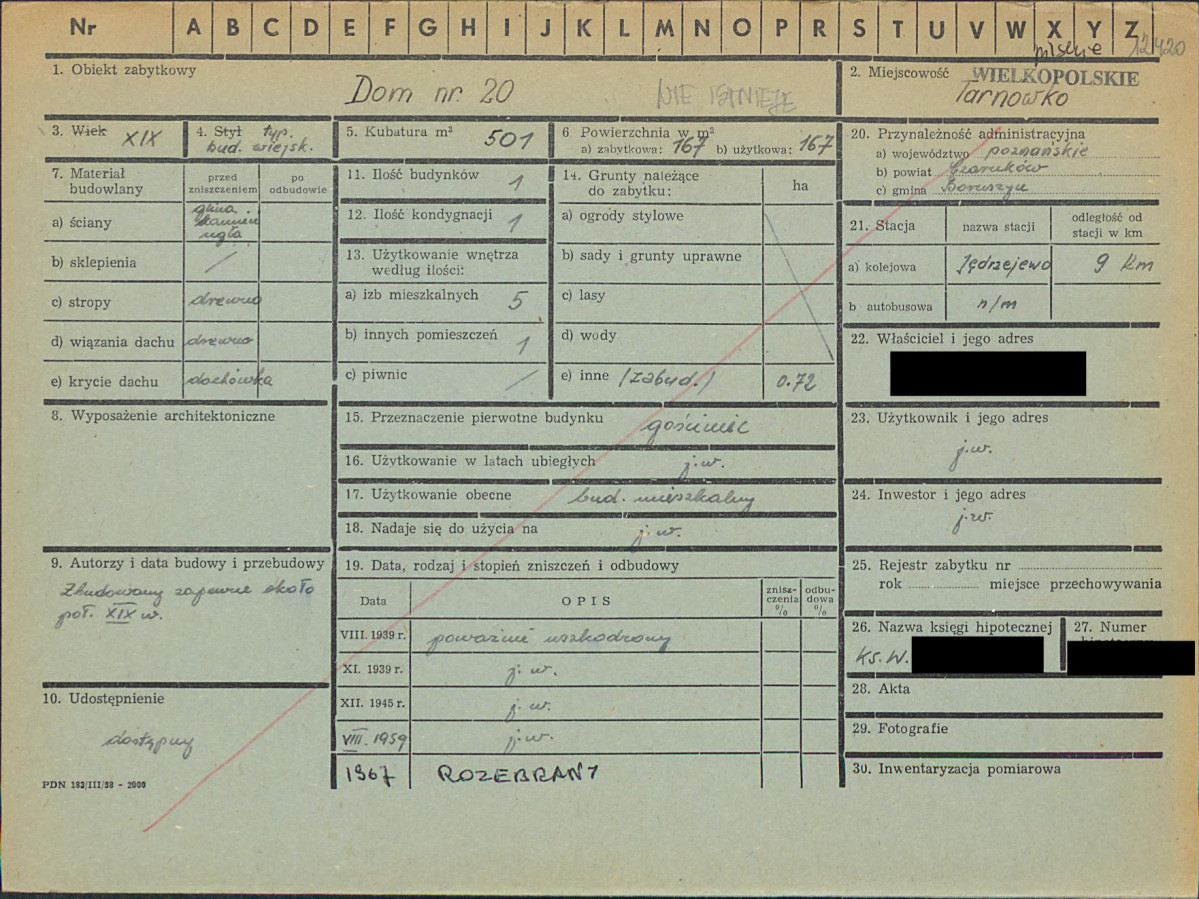 Nr A B C D E F G H I J K L M N O P R S T U V W X Y Z
pilskie 12420
1. Obiekt zabytkowy
Dom nr. 20
NIE ISTNIEJE
2. Miejscowość WIELKOPOLSKIE
Tarnowko
3. Wiek XIX
4. Styl typ.
bud. wiejsk.
5. Kubatura m³ 501
6 Powierzchnia w m²
a) zabytkowa: 167 b) użytkowa: 167
7. Materiał
budowlany
przed
zniszczeniem
po
odbudowie
a) ściany
glina
cegła
b) sklepienia /
c) stropy drewno
d) wiązania dachu drewno
e) krycie dachu dachówka
8. Wyposażenie architektoniczne
9. Autorzy i data budowy i przebudowy
Zbudowany zapewne około
poł. XIX w.
10. Udostępnienie
dostępny
PDN 183/III/58 - 2000
11. Ilość budynków 1
12. Ilość kondygnacji 1
13. Użytkowanie wnętrza
według ilości:
a) izb mieszkalnych 5
b) innych pomieszczeń 1
c) piwnic /
14. Grunty należące
do zabytku:
ha
a) ogrody stylowe
b) sady i grunty uprawne
c) lasy
d) wody
e) inne (zabud.) 0.72
15. Przeznaczenie pierwotne budynku gościniec
16. Użytkowanie w latach ubiegłych j.w.
17. Użytkowanie obecne bud. mieszkalny
18. Nadaje się do użycia na j.w.
19. Data, rodzaj i stopień zniszczeń i odbudowy
Data
OPIS
znisz-
czenia
%
odbu-
dowa
%
VIII. 1939 r. poważnie uszkodzony
XI. 1939 r. j.w.
XII. 1945 r. j.w.
VIII. 1959 j.w.
1967 ROZEBRANY
20. Przynależność administracyjna
a) województwo poznańskie
b) powiat Czarnków
c) gmina Boruszyn
21. Stacja
nazwa stacji
odległość od
stacji w km
a) kolejowa Jędrzejewo 9 km
b autobusowa n/m
22. Właściciel i jego adres
23. Użytkownik i jego adres
j.w.
24. Inwestor i jego adres
j.w.
25. Rejestr zabytku nr
rok miejsce przechowywania
26. Nazwa księgi hipotecznej
Ks.W.
27. Numer
28. Akta
29. Fotografie
30. Inwentaryzacja pomiarowa